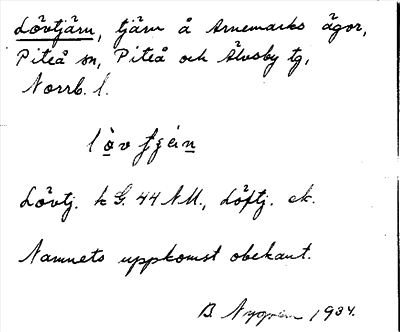 Lövtjärn, tjärn å Arnemarks ägor,
Piteå sn, Piteå och Älvsby tg,
Norrb. l.
Lövtj. k G. 44 NU., Löftj. ek.
Namnets uppkomst obekant.
B Nygren 1934.